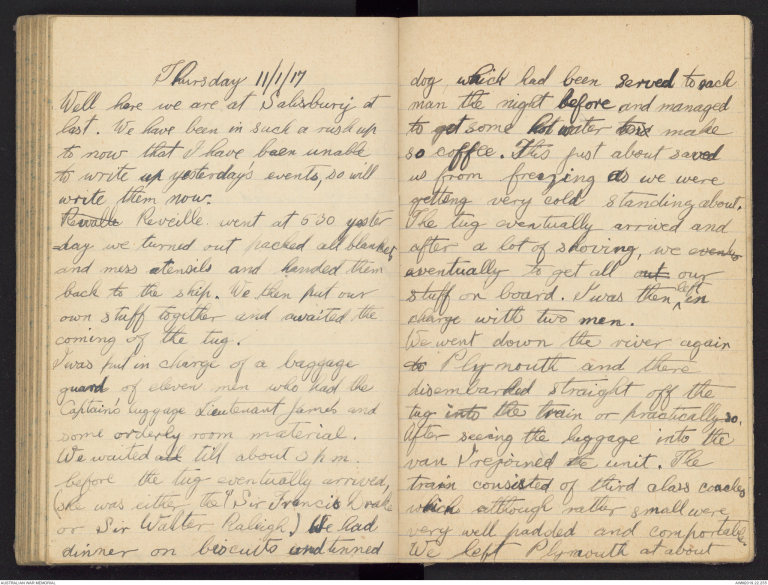 Thursday 11/1/17
Well here we are at Salisbury at
last. We have been in such a rush up
to now that I have been unable
to write up yesterdays events, so will
write them now.
Reveille went at 5 30 yester
-day we turned out packed all blankets
and mess utensils and handed them
back to the ship. We then put our
own stuff together and awaited the
coming of the tug.
I was put in charge of a baggage
guard of eleven men who had the
Captain's luggage Lieutenant James and
some orderly room material.
We waited till about 3 p m.
before the tug eventually arrived,
(she was either the "Sir Francis Drake
or Sir Walter Raleigh) We had
dinner on biscuits and tinned
dog which had been served to each
man the night before and managed
to get some hot water to make
so coffee. This just about saved
us from freezing as we were
getting very cold standing about.
The tug eventually arrived and
after a lot of shoving, we
eventually to get all out our
stuff on board. I was then left in
charge with two men.
We went down the river again
to Plymouth and there
disembarked straight off the
tug into the train or practically so.
After seeing the luggage into the
van I rejoined the unit. The
train consisted of third class coaches
which although rather small were
very well padded and comfortable.
We left Plymouth at about
AUSTRALIAN WAR MEMORIAL